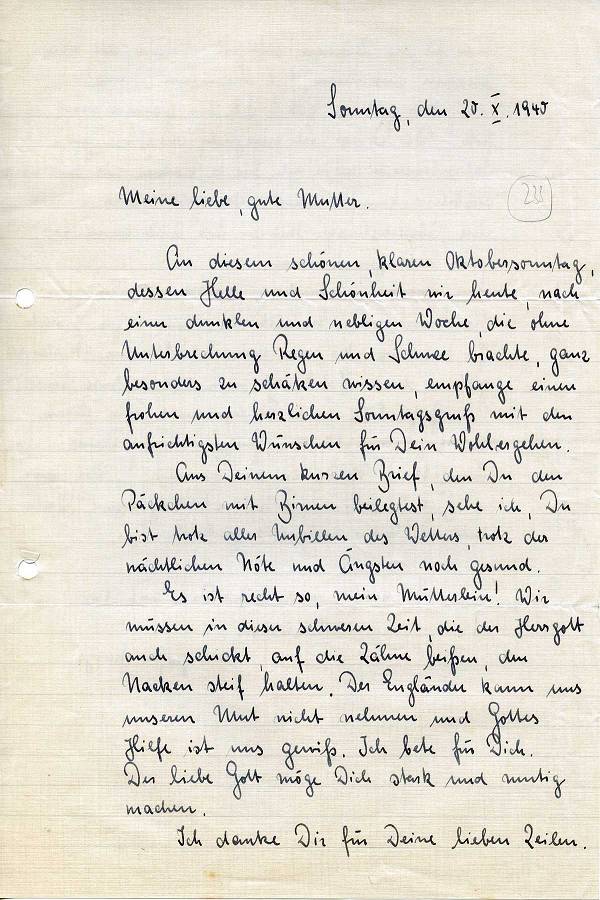 Sonntag, den 20. X. 1940
Meine liebe, gute Mutter.
An diesem schönen, klaren Oktobersonntag,
dessen Helle und Schönheit wir heute, nach
einer dunklen und nebligen Woche, die ohne
Unterbrechung Regen und Schnee brachte, ganz
besonders zu schätzen wissen, empfange einen
frohen und herzlichen Sonntagsgruß mit den
aufrichtigsten Wünschen für Dein Wohlergehen.
Aus Deinem kurzen Brief, den Du den
Päckchen mit Birnen beilegtest, sehe ich, Du
bist trotz aller Unbillen des Wetters, trotz der
nächtlichen Nöte und Ängsten noch gesund.
Es ist recht so, mein Mütterlein! Wir
müssen in dieser schweren Zeit, die der Herrgott
auch schickt, auf die Zähne beißen, den
Nacken steif halten. Der Engländer kann uns
unseren Mut nicht nehmen und Gottes
Hilfe ist uns gewiß. Ich bete für Dich.
Der liebe Gott möge Dich stark und mutig
machen.
Ich danke Dir für Deine lieben Zeilen.